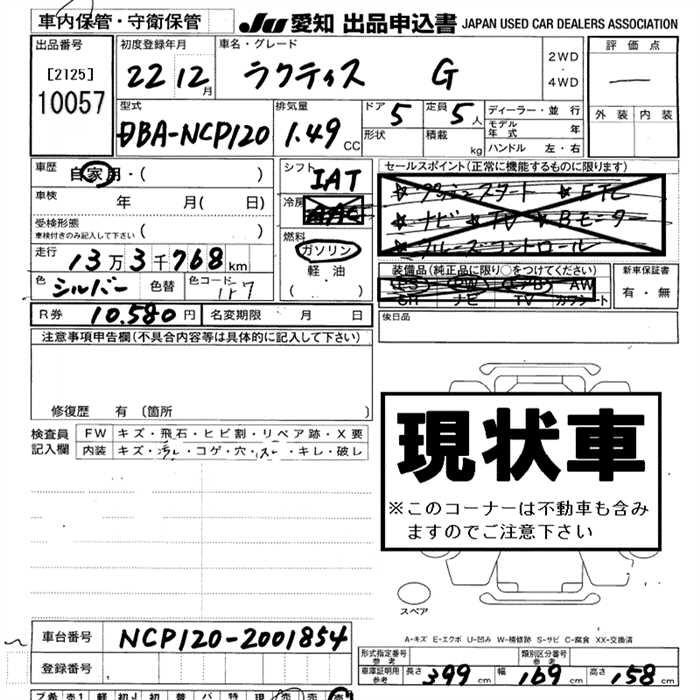 車内保管・守衛保管 JU 愛知 出品申込書 JAPAN USED CAR DEALERS ASSOCIATION
出品番号 初度登録年月 車名・グレード 2WD ・ 4WD 評価点
[2125] 22 12月 ラクティス G ―
10057 外装 内装
型式 排気量 ドア 5 定員 5人 ディーラー・並行
DBA-NCP120 1.49 CC 形状 積載 kg モデル年式 年
ハンドル 左・右
車歴 自家用・( ) シフト IAT セールスポイント(正常に機能するものに限ります)
車検 年 月( 日) 冷房 AAC ☆プッシュスタート ☆ETC
受検形態 ( ) ☆ナビ☆TV ☆Bモニター
車検付きのみ記入して下さい 燃料 ガソリン ☆クルーズコントロール
走行 13万3千768km 軽油 装備品(純正品に限り○をつけてください) 新車保証書
色 シルバー 色替 色コード 1F7 ( ・ ) PS PW エアB AW 有・無
SR ナビ TV カワシート
R券 10.580円 名変期限 月 日 後日品
注意事項申告欄(不具合内容等は具体的に記入して下さい)
修復歴 有 〔箇所 〕
検査員記入欄 FW キズ・飛石・ヒビ割・リペア跡・X要
内装 キズ・汚レ・コゲ・穴・スレ・キレ・破レ
現状車
※このコーナーは不動車も含み
ますのでご注意下さい
スペア
A-キズ E-エクボ U-凹み W-補修跡 S-サビ C-腐食 XX-交換済
車台番号 NCP120-2001854
登録番号
形式指定番号 参考 類別区分番号 参考
車庫証明用参考 長さ 399 cm 幅 169 cm 高さ 158 cm